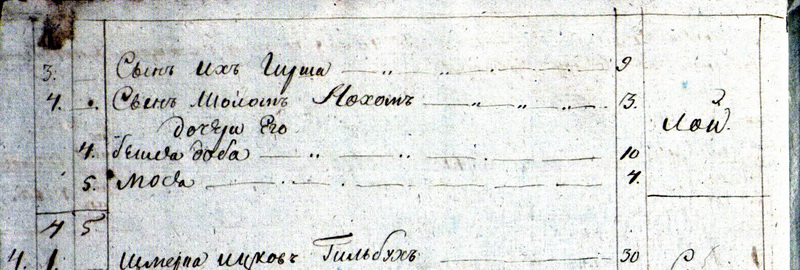 3. Сынъ ихъ Гирша 9
4. Сынъ Мойомъ Нохомъ 3. лой.
дочери Его
4. бейла доба 10
5. Мося 4.
4 5
4. 1. Шмерла Ицковъ Гильбухъ 30